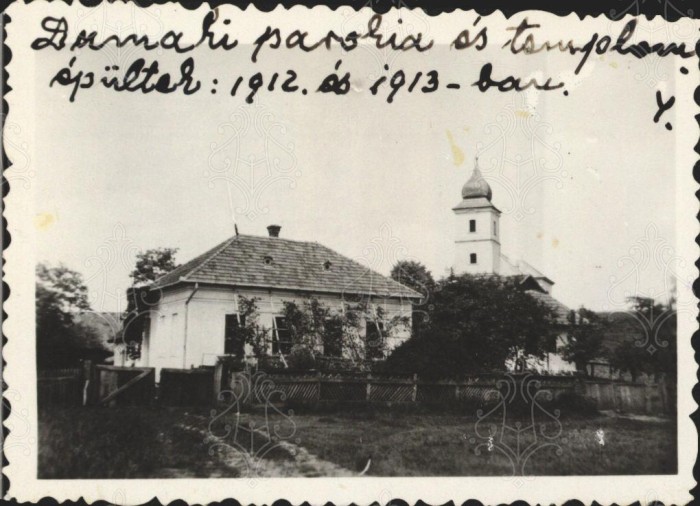 Damaki parokia és templom,
épültek: 1912. és 1913-ban.
Y.